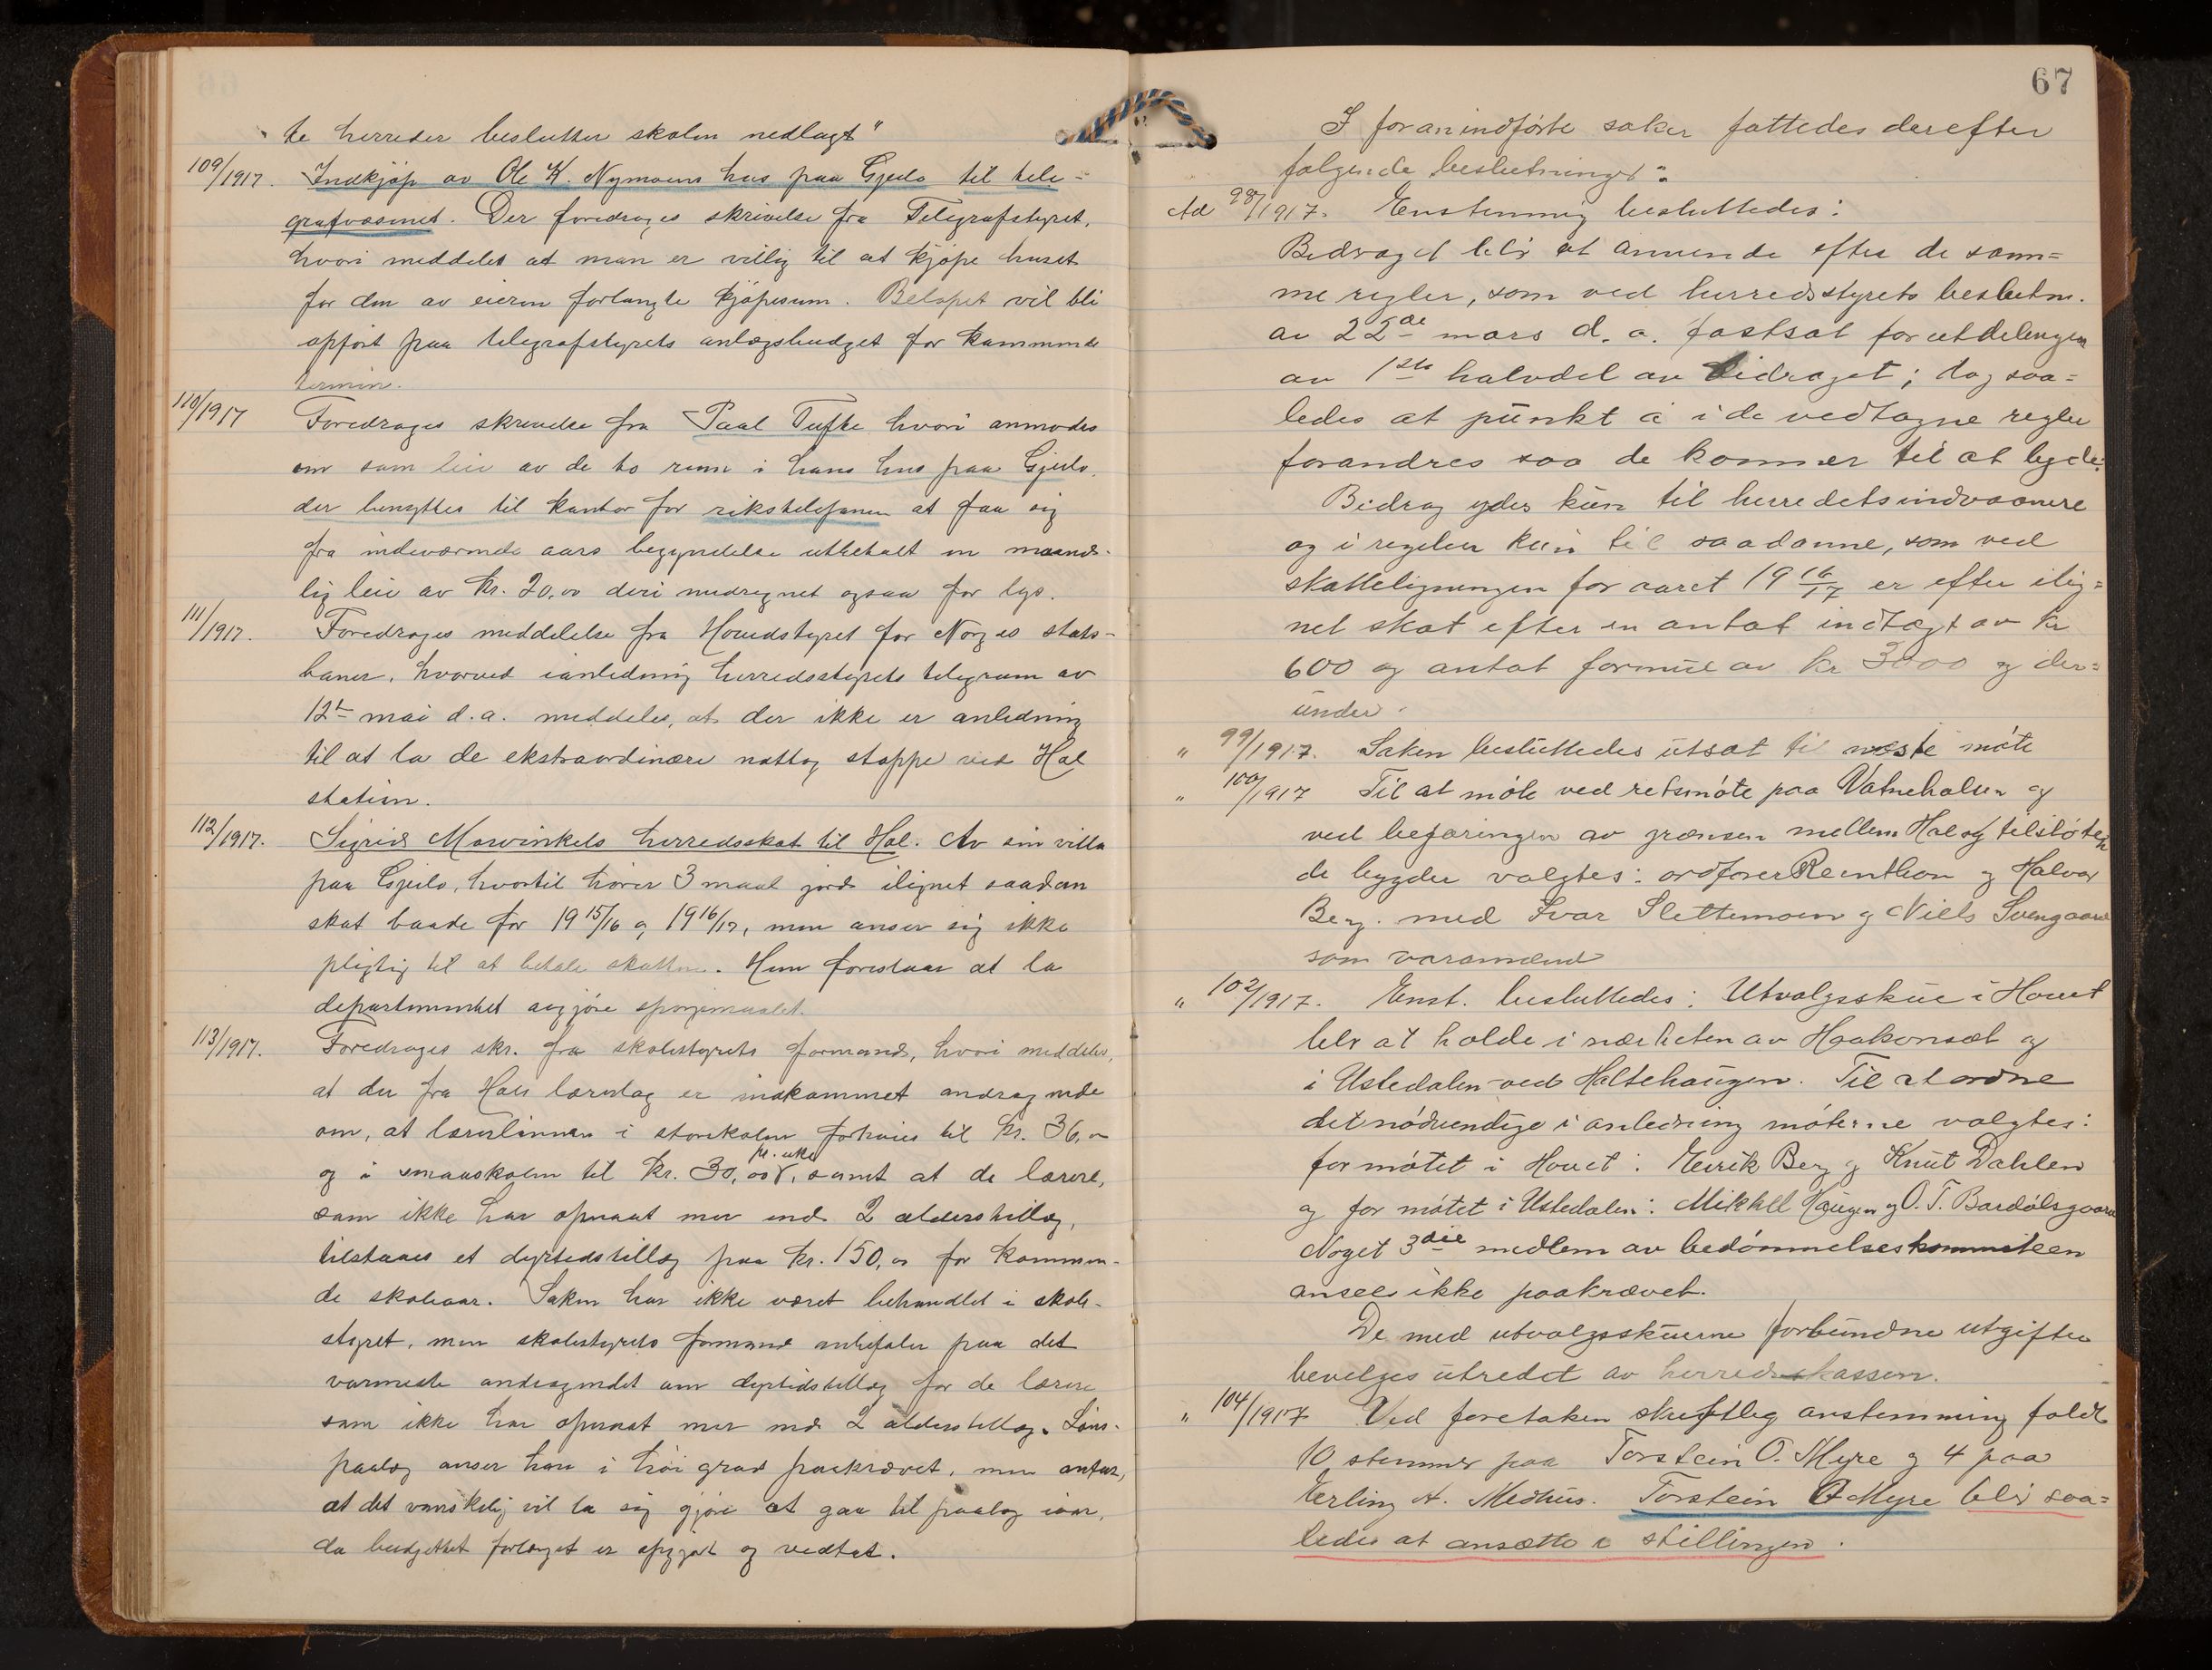 te herreder beslutter skolen nedlagt"
109/1917. Indkjøp av Ole K. Nymoens hus paa Gjeilo til tele-
grafvæsenet. Der foredrages skrivelse fra Telegrafstyret,
hvori meddeles at man er villig til at kjøpe huset
for den av eieren forlangte kjøpesum. Beløpet vil bli
opført paa telegrafstyrets anlægsbudget for kommende
termin.
110/1917 Foredrages skrivelse fra Paal Tufte hvori anmodes
om som leie av de to rum i hans hus paa Gjeilo,
der benyttes til kontor for rikstelefonen at faa sig
fra indeværende aars begyndelse utbetalt en maaned-
lig leie av kr. 20,00 deri medregnet ogsaa for lys.
111/1917. Foredrages meddelelse fra Hovedstyret for Norges stats-
baner, hvorved i anledning herredsstyrets telegram av
12te mai d.a. meddeles, at der ikke er anledning
til at la de ekstraordinære nattog stoppe ved Hol
station.
112/1917. Sigrid Mowinkels herredsskat til Hol. Av sin villa
paa Gjeilo, hvortil hører 3 maal jord ilignet saadan
skat baade for 1915/16 og 1916/17, men anser sig ikke
pligtig til at betale skatten. Hun foreslaar at la
departementet avgjøre spørsmaalet.
113/1917. Foredrages skr. fra skolestyrets formand, hvori meddeles,
at der fra Hols lærerlag er indkommet andragende
om, at lærerlønnen i storskolen forhøies til kr. 36,00
og i smaaskolen til kr. 30,00 pr. uke, samt at de lærere,
som ikke har opnaat mer end 2 alderstillæg,
tilstaaes et dyrtidstillæg paa kr. 150,00 for kommen-
de skoleaar. Saken har ikke været behandlet i skole-
styret, men skolestyrets formand anbefaler paa det
varmeste andragendet om dyrtidstillæg for de lærere
som ikke har opnaat mer end 2 alderstillæg. Løns-
paalæg anser han i høi grad paakrævet, men antar,
at det vanskelig vil la sig gjøre at gaa til paalæg iaar,
da budgettet forlængst er opgjort og vedtat.
67
I foranindførte saker fattedes derefter
følgende beslutninger:
Ad 98/1917. Enstemmig besluttedes:
Bidraget blir at anvende efter de sam=
me regler, som ved herredsstyrets beslutn.
av 22de mars d. a. fastsat for utdelingen
av 1ste halvdel av bidraget; dog saa=
ledes at punkt a i de vedtagne regler
forandres saa de kommer til at lyde:
Bidrag ydes kun til herredets indvaanere
og i regelen kun til saadanne, som ved
skatteligningen for aaret 1916/17 er efter ilig=
net skat efter en antat indtægt av kr
600 og antat formue av kr 3000 og der=
under.
" 99/1917. Saken besluttedes utsat til næste møte
" 100/1917 Til at møte ved retsmøte paa Vatneholsen og
ved befaringen av grænsen mellem Hol og tilstøten
de bygder valgtes: ordfører Reinthon og Halvor
Berg. med Ivar Slettemoen og Niels Svengaard
som varamænd
" 102/1917. Enst. besluttedes: Utvalgsskue i Hovet
blir at holde i nærheten av Haakonsæt og
i Ustedalen ved Haltehaugen. Til at ordne
det nødvendige i anledning møterne valgtes:
for møtet i Hovet: Eirik Berg og Knut Dahlen
og for møtet i Ustedalen: Mikkel Haugen og O. T. Bardølsgaard
Noget 3die medlem av bedømmelseskommiteen
ansees ikke paakrævet.
De med utvalgsskuerne forbundne utgifter
bevilges utredet av herredskassen.
" 104/1917 Ved foretaken skriftlig avstemming faldt
10 stemmer paa Torstein O. Myre og 4 paa
Erling A. Medhus. Torstein O Myre blir saa=
ledes at ansætte i stillingen.